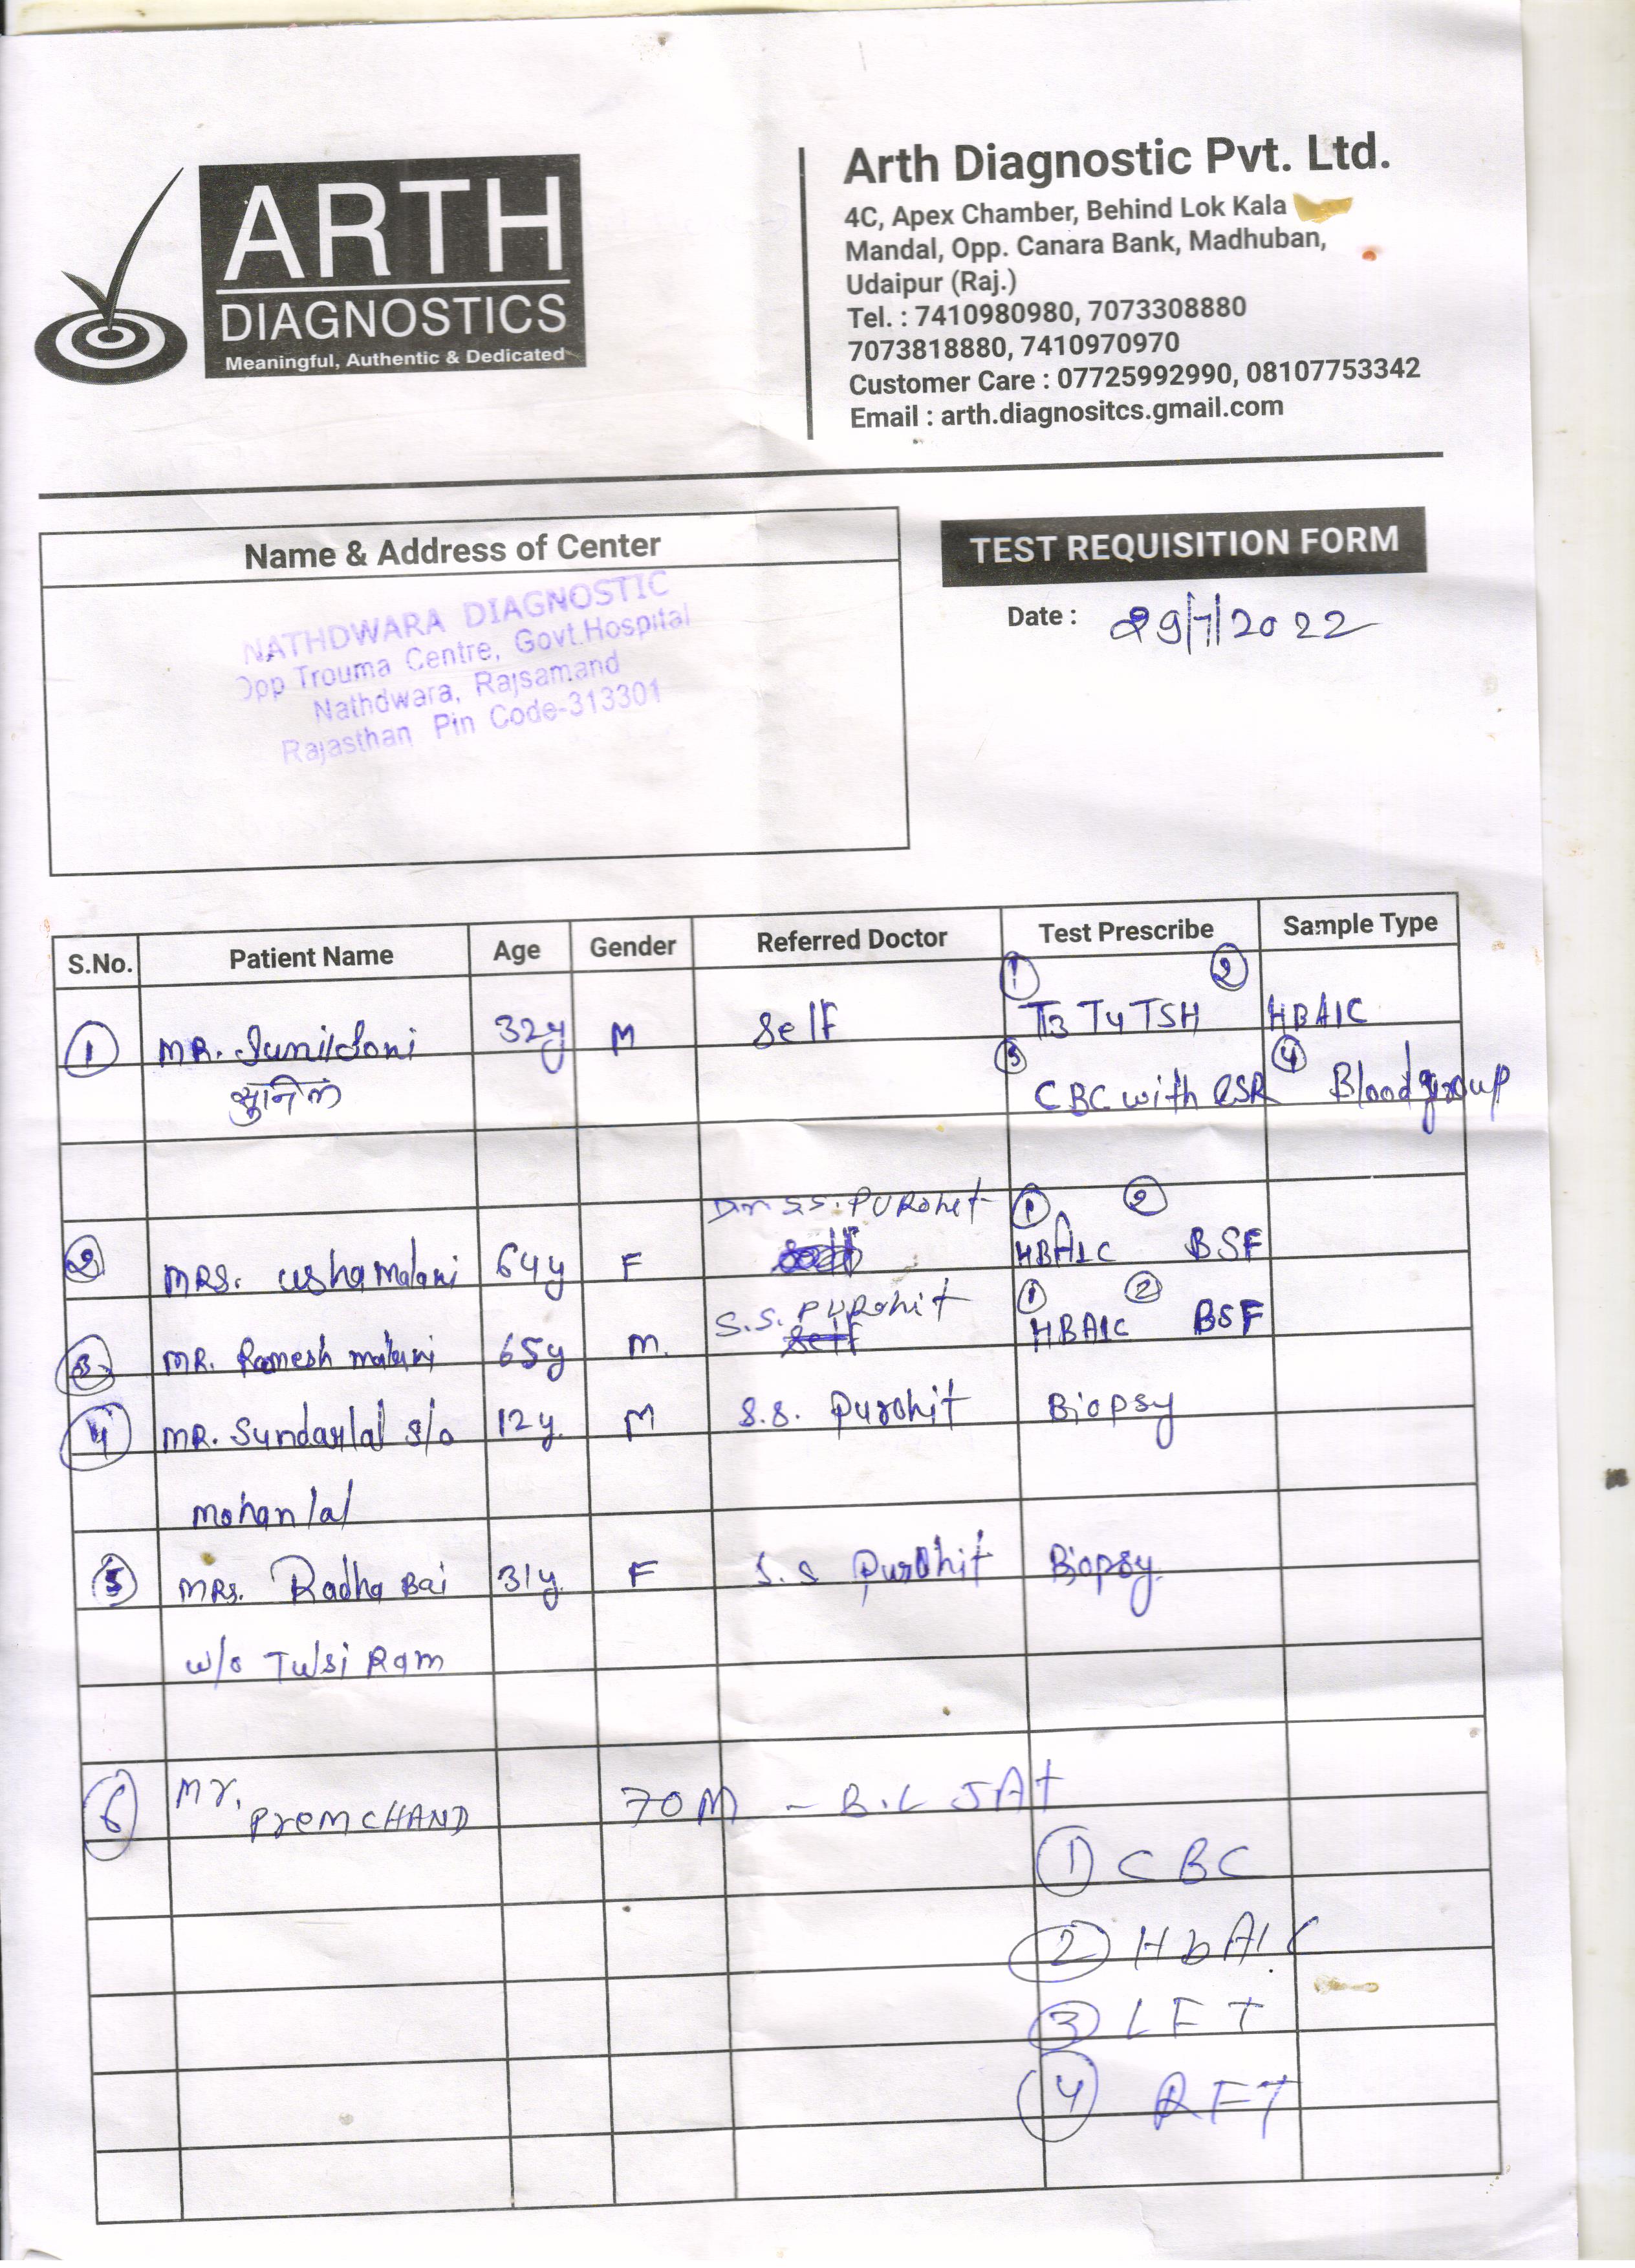 ARTH
DIAGNOSTICS
Meaningful, Authentic & Dedicated
Arth Diagnostic Pvt. Ltd.
4C, Apex Chamber, Behind Lok Kala
Mandal, Opp. Canara Bank, Madhuban,
Udaipur (Raj.)
Tel. : 7410980980, 7073308880
7073818880, 7410970970
Customer Care : 07725992990, 08107753342
Email : arth.diagnositcs.gmail.com
Name & Address of Center
NATHDWARA DIAGNOSTIC
Opp Trouma Centre, Govt.Hospital
Nathdwara, Rajsamand
Rajasthan Pin Code-313301
TEST REQUISITION FORM
Date : 29/7/2022
S.No. Patient Name Age Gender Referred Doctor Test Prescribe Sample Type
1 MR. Sunil Soni 32y M Self 1 T3 T4 TSH 2 HBA1C
सुनिल 3 CBC with ESR 4 Blood group
2 MRS. Usha Malani 64y F Dr. S.S. PUROHIT 1 HBA1C 2 BSF
3 MR. Ramesh malani 65y M. S.S. PUROhit Self 1 HBA1C 2 BSF
4 MR. Sundarlal s/o 12y. M S.S. Purohit Biopsy
mohanlal
5 MRS. Radha Bai 31y. F S.S Purohit Biopsy.
w/o Tulsi Ram
6 Mr. PremCHAND 70 M - B.L JAt
1 CBC
2 HbA1C
3 LFT
4 RFT